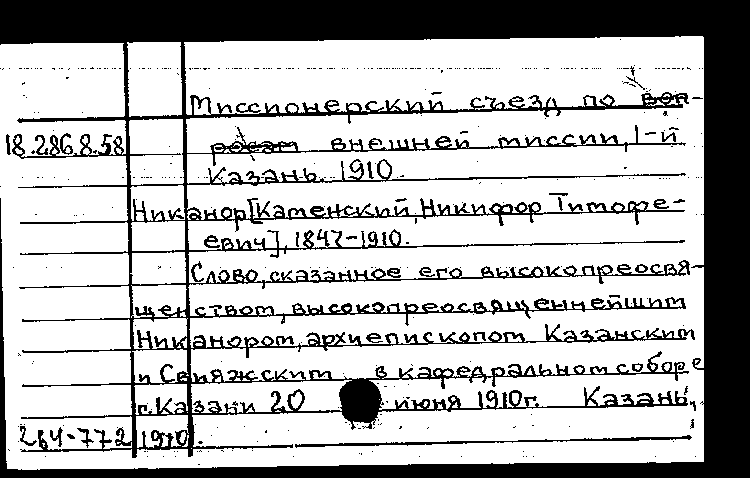 Миссионерский съезд по воп-
18.286.8.58 росам внешней миссии, 1-й
Казань. 1910.
Никанор[Каменский, Никифор Тимофе-
евич], 1847-1910.
Слово, сказанное его высокопреосвя-
щенством, высокопреосвященнейшим
Никанором, архиепископом Казанским
и Свияжским в кафедральном соборе
г. Казани 20 июня 1910г. Казань,
264-772 1910.